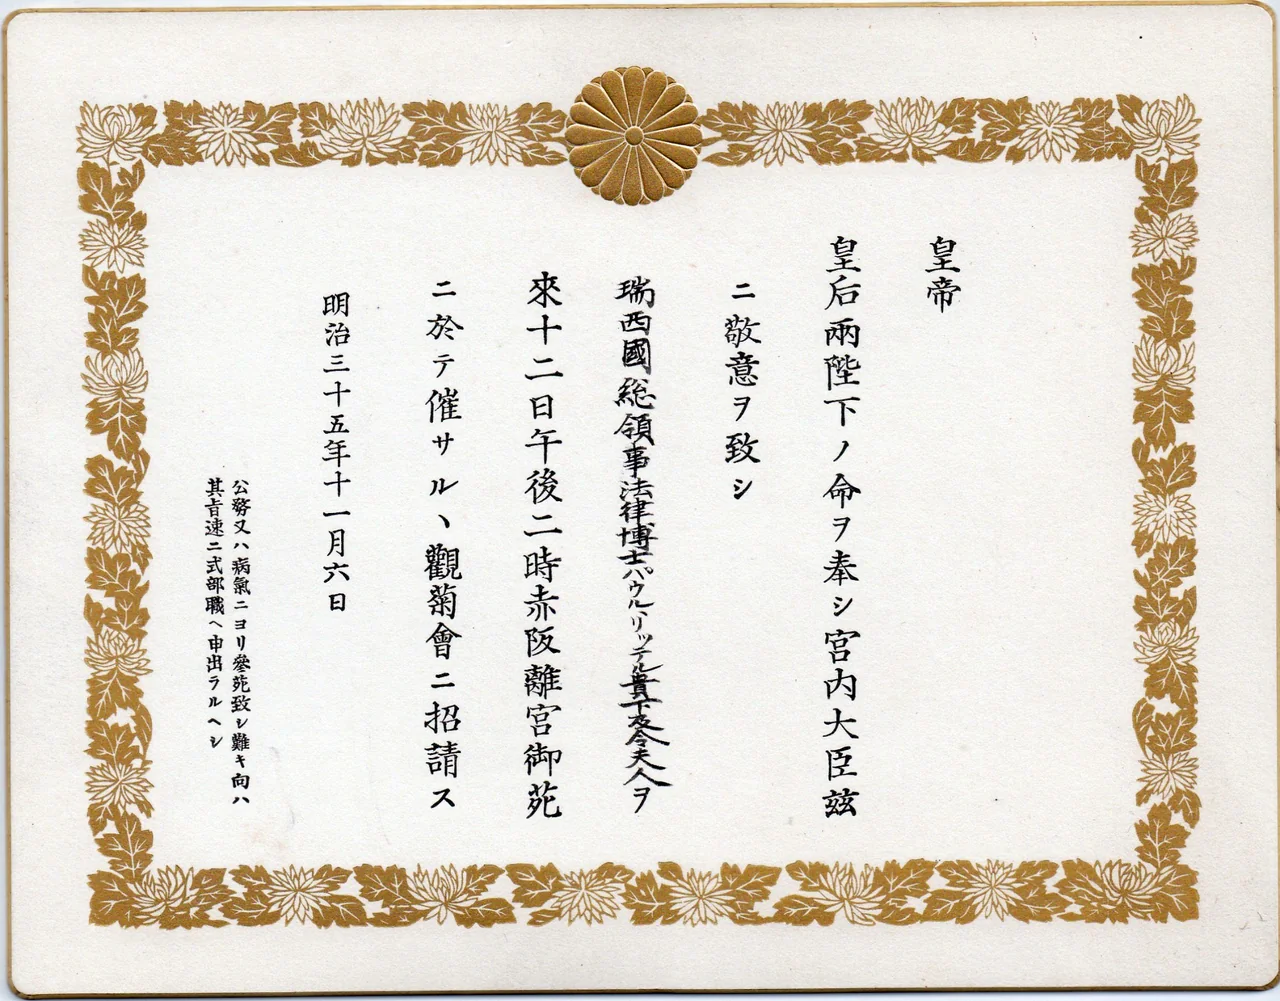 皇帝
皇后兩陛下ノ命ヲ奉シ宮内大臣玆
ニ敬意ヲ致シ
瑞西國総領事法律博士パウル、リッテル貴下及令夫人ヲ
來十二日午後二時赤阪離宮御苑
ニ於テ催サルヽ觀菊會ニ招請ス
明治三十五年十一月六日
公務又ハ病氣ニヨリ參苑致シ難キ向ハ
其旨速ニ式部職ヘ申出ラルヘシ